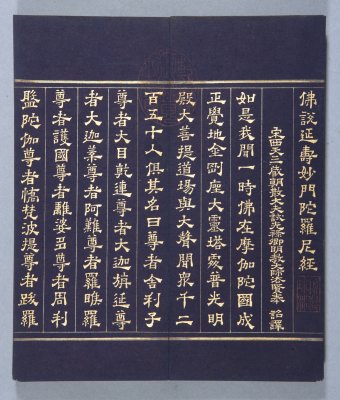 佛說延壽妙門陀羅尼經
宋西天三藏朝散大夫試光祿卿明教大師法賢奉 詔譯
如是我聞一時佛在摩伽陀國成
正覺地金剛座大靈塔處普光明
殿大菩提道場與大聲聞眾千二
百五十人俱其名曰尊者舍利子
尊者大目乾連尊者大迦旃延尊
者大迦葉尊者阿難尊者羅睺羅
尊者護國尊者離婆多尊者周利
盤陀伽尊者憍梵波提尊者跋羅